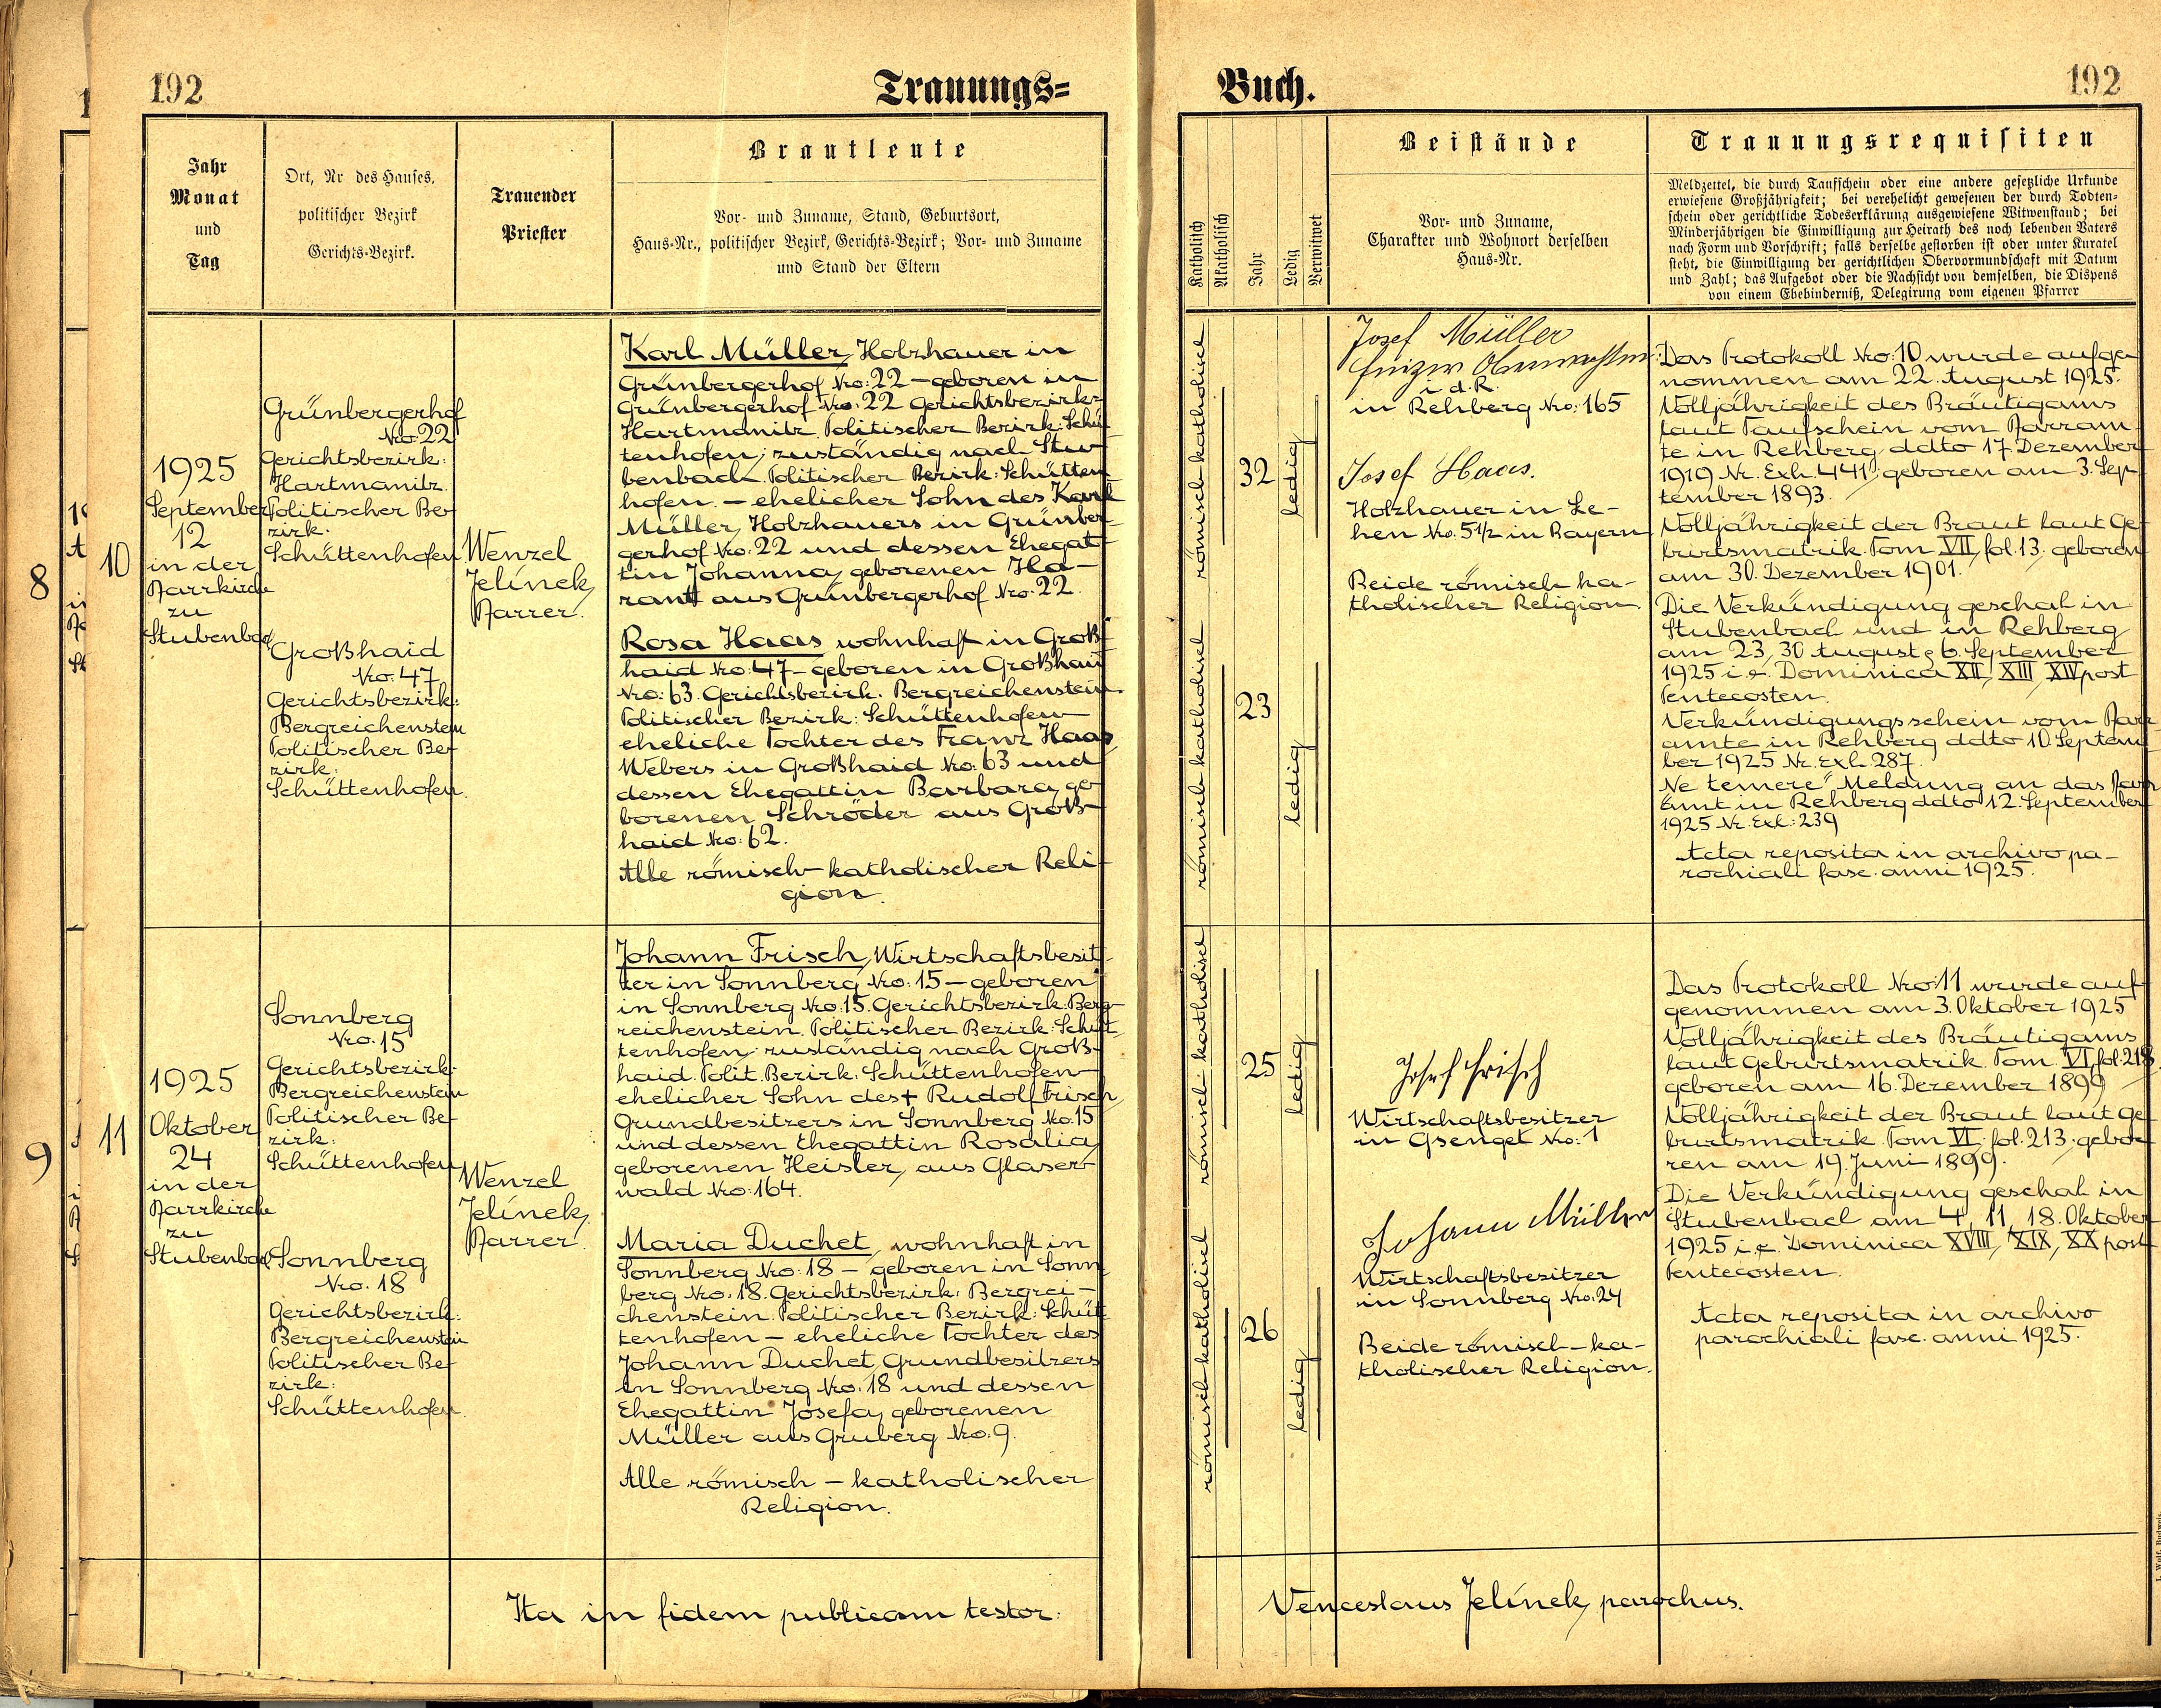 192
Trauungs=
Jahr
Monat
und
Tag
Ort, Nr des Hauses,
politischer Bezirk
Gerichts-Bezirk.
Trauender
Priester
Brautleute
Vor- und Zuname, Stand, Geburtsort,
Haus-Nr., politischer Bezirk, Gerichts-Bezirk; Vor- und Zuname
und Stand der Eltern
8
10
1925
September
12
in der
Pfarrkirche
zu
Stubenbach
Grünbergerhof
Nro: 22
Gerichtsbezirk:
Hartmanitz
Politischer Be-
zirk:
Schüttenhofen
Großhaid
Nro: 47
Gerichtsbezirk:
Bergreichenstein
Politischer Be-
zirk:
Schüttenhofen
Wenzel
Jelínek,
Pfarrer.
Karl Müller, Holzhauer in
Grünbergerhof Nro: 22 – geboren in
Grünbergerhof Nro: 22 Gerichtsbezirk:
Hartmanitz. Politischer Bezirk: Schüt-
tenhofen; zuständig nach Stu-
benbach. Politischer Bezirk: Schütten-
hofen. – ehelicher Sohn des Karl
Müller, Holzhauers in Grünber-
gerhof Nro: 22 und dessen Ehegat-
tin Johanna, geborenen Ha-
rant aus Grünbergerhof Nro: 22.
Rosa Haas wohnhaft in Groß-
haid Nro: 47 – geboren in Großhaid
Nro: 63. Gerichtsbezirk. Bergreichenstein
Politischer Bezirk: Schüttenhofen –
eheliche Tochter des Franz Haas,
Webers in Großhaid Nro: 63 und
dessen Ehegattin Barbara, ge-
borenen Schröder aus Groß-
haid Nro: 62.
Alle römisch-katholischer Reli-
gion.
9
11
1925
Oktober
24
in der
Pfarrkirche
zu
Stubenbach
Sonnberg
Nro. 15
Gerichtsbezirk:
Bergreichenstein
Politischer Be-
zirk:
Schüttenhofen
Sonnberg
Nro. 18
Gerichtsbezirk:
Bergreichenstein
Politischer Be-
zirk:
Schüttenhofen.
Wenzel
Jelínek,
Pfarrer.
Johann Frisch, Wirtschaftsbesit-
zer in Sonnberg Nro: 15 – geboren
in Sonnberg Nro: 15. Gerichtsbezirk: Berg-
reichenstein. Politischer Bezirk: Schüt-
tenhofen; zuständig nach Groß-
haid. Polit. Bezirk: Schüttenhofen –
ehelicher Sohn des † Rudolf Frisch,
Grundbesitzers in Sonnberg No: 15
und dessen Ehegattin Rosalia,
geborenen Heisler, aus Glaser-
wald Nro: 164.
Maria Duchet, wohnhaft in
Sonnberg Nro: 18 – geboren in Sonn-
berg Nro: 18. Gerichtsbezirk: Bergrei-
chenstein. Politischer Bezirk: Schüt-
tenhofen – eheliche Tochter des
Johann Duchet, Grundbesitzers
in Sonnberg Nro: 18 und dessen
Ehegattin Josefa, geborenen
Müller aus Gruberg Nro: 9.
Alle römisch – katholischer
Religion.
Ita in fidem publicam testor:
Buch.
192
Katholisch
Akatholisch
Jahr
Ledig
Verwitwet
Beistände
Vor- und Zuname,
Charakter und Wohnort derselben
Haus-Nr.
Trauungsrequisiten
Meldzettel, die durch Taufschein oder eine andere gesetzliche Urkunde
erwiesene Großjährigkeit; bei verehelicht gewesenen der durch Todten-
schein oder gerichtliche Todeserklärung ausgewiesene Witwenstand; bei
Minderjährigen die Einwilligung zur Heirath des noch lebenden Vaters
nach Form und Vorschrift; falls derselbe gestorben ist oder unter Kuratel
steht, die Einwilligung der gerichtlichen Obervormundschaft mit Datum
und Zahl; das Aufgebot oder die Nachsicht von demselben, die Dispens
von einem Ehehinderniß, Delegirung vom eigenen Pfarrer
römisch katholisch
32
ledig
römisch katholisch
23
ledig
Josef Müller
i. d. R.
in Rehberg Nro: 165
Josef Haas.
Holzhauer in Le-
hen Nro. 5 1/2 in Bayern
Beide römisch ka-
tholischer Religion
Das Protokoll Nro: 10 wurde aufge-
nommen am 22. August 1925.
Volljährigkeit des Bräutigams
laut Taufschein vom Pfarram-
te in Rehberg ddto 17. Dezember
1919 Nr. Exh. 441; geboren am 3. Sep-
tember 1893.
Volljährigkeit der Braut laut Ge-
burtsmatrik. Tom VII, fol. 13. geboren
am 30. Dezember 1901.
Die Verkündigung geschah in
Stubenbach und in Rehberg
am 23, 30 August & 6. September
1925 i. e. Dominica XII, XIII, XIV post
Pentecosten.
Verkündigungsschein vom Pfarr-
amte in Rehberg ddto 10 Septem-
ber 1925 Nr. Exh. 287.
Ne temere" Meldung an das Pfarr-
amt in Rehberg ddto 12. September
1925 Nr. Exh: 239
Acta reposita in archivo pa-
rochiali fasc. anni 1925.
römisch katholisch
25
ledig
römisch-katholisch
26
ledig
Josef Frisch
Wirtschaftsbesitzer
in Gsenget No: 1
Johann Müller
Wirtschaftsbesitzer
in Sonnberg Nro: 24
Beide römisch – ka-
tholischer Religion.
Das Protokoll Nro: 11 wurde auf-
genommen am 3. Oktober 1925
Volljährigkeit des Bräutigams
laut Geburtsmatrik. Tom. VI, fol. 218.
geboren am 16. Dezember 1899
Volljährigkeit der Braut laut Ge-
burtsmatrik. Tom VI. fol. 213. gebo-
ren am 19. Juni 1899.
Die Verkündigung geschah in
Stubenbach am 4, 11, 18. Oktober
1925 i. e. Dominica XVIII, XIX, XX post
Pentecosten.
Acta reposita in archivo
parochiali fasc. anni 1925.
Venceslaus Jelínek, parochus.